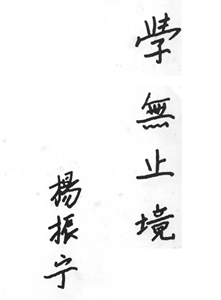 學無止境
楊振宁